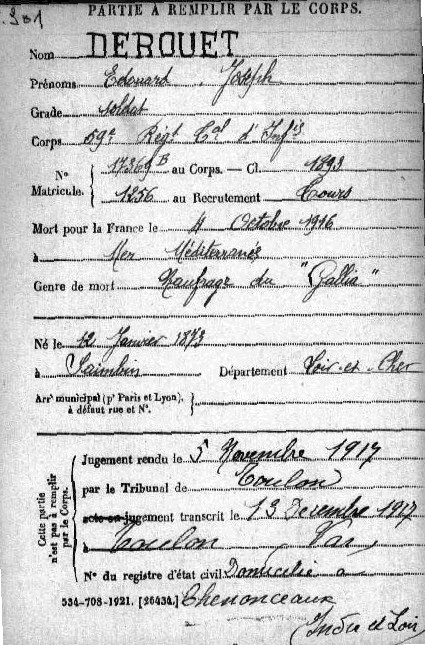 381
PARTIE À REMPLIR PAR LE CORPS.
Nom DEROUET
Prénoms Edouard Joseph
Grade soldat
Corps 59e Régt Cal d'Infie
N° 17369B au Corps. — Cl. 1893
Matricule. 1256 au Recrutement Tours
Mort pour la France le 4 Octobre 1916
à Mer Méditerranée
Genre de mort Naufrage du "Gallia"
Né le 12 Janvier 1873
à Sambin Département Loir-et-Cher
Arrt municipal (pr Paris et Lyon),
à défaut rue et N°.
Cette partie
n'est pas à remplir
par le Corps.
Jugement rendu le 5 Novembre 1917
par le Tribunal de Toulon
acte ou jugement transcrit le 13 Décembre 1917
à Toulon Var
N° du registre d'état civil Domicilié à
534-708-1921. [26434.] Chenonceaux
Indre et Loir